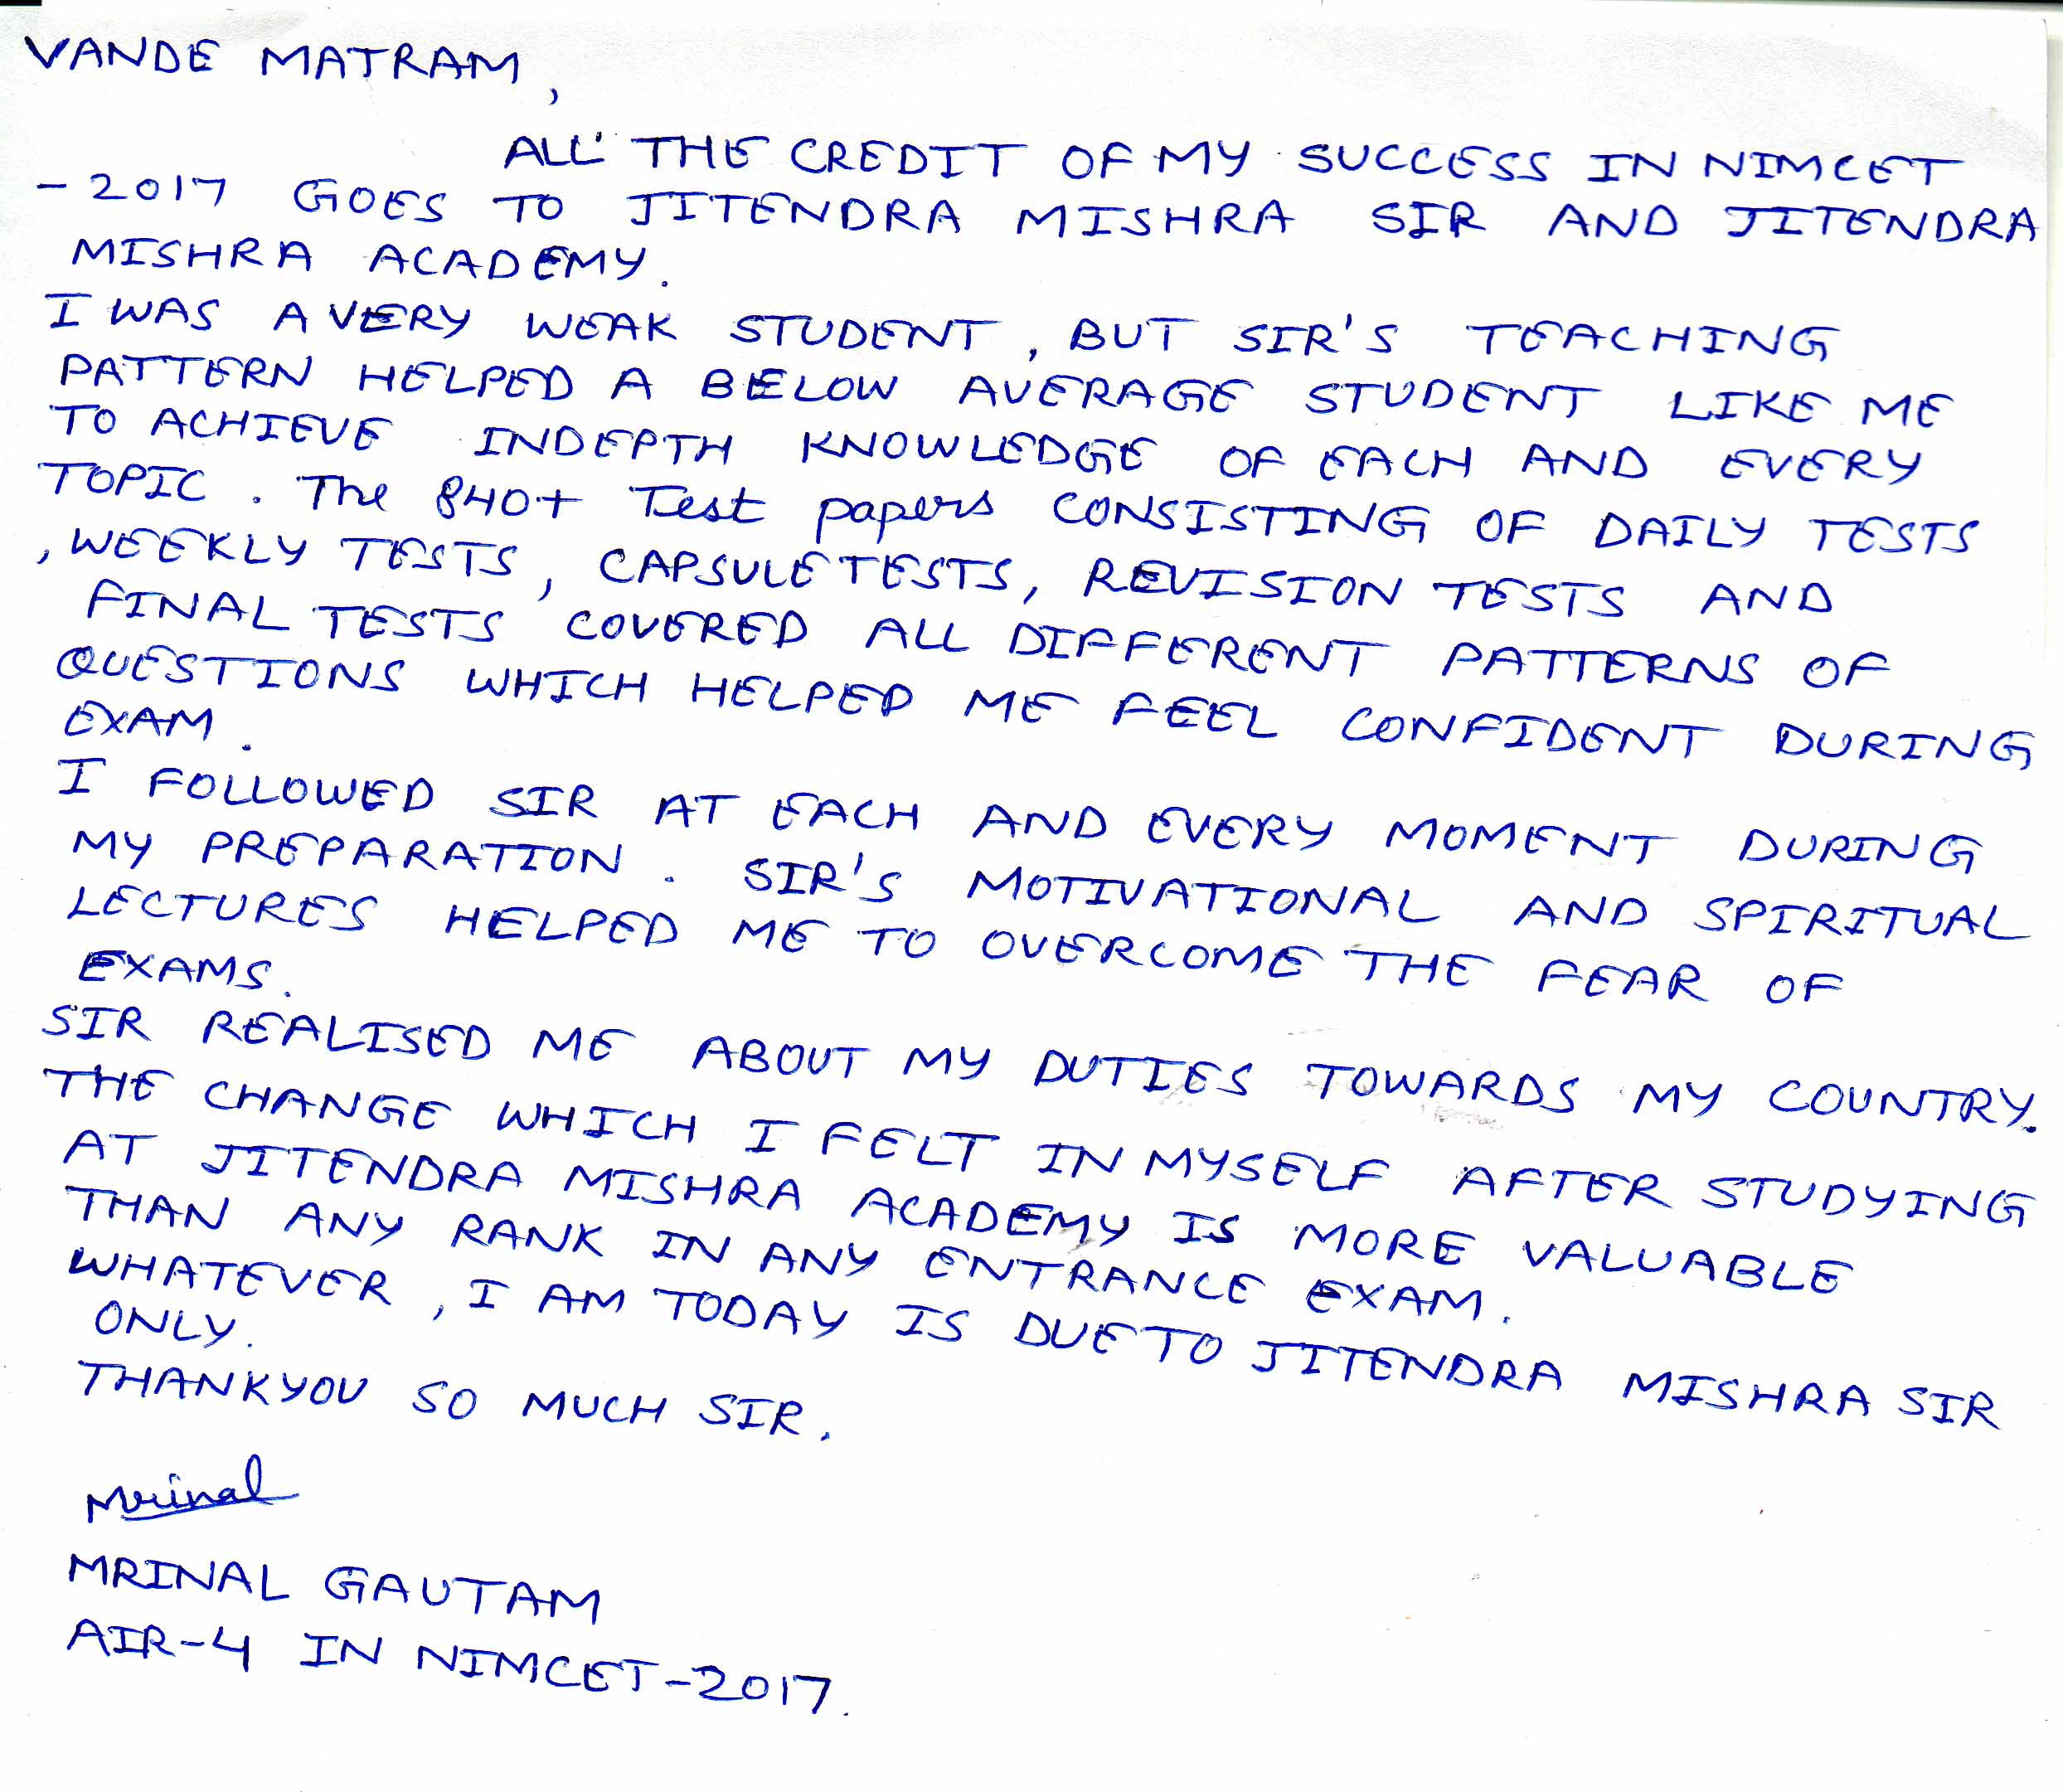 VANDE MATRAM,
ALL THE CREDIT OF MY SUCCESS IN NIMCET
- 2017 GOES TO JITENDRA MISHRA SIR AND JITENDRA
MISHRA ACADEMY.
I WAS A VERY WEAK STUDENT, BUT SIR'S TEACHING
PATTERN HELPED A BELOW AVERAGE STUDENT LIKE ME
TO ACHIEVE INDEPTH KNOWLEDGE OF EACH AND EVERY
TOPIC. The 840+ Test papers CONSISTING OF DAILY TESTS
, WEEKLY TESTS, CAPSULE TESTS, REVISION TESTS AND
FINAL TESTS COVERED ALL DIFFERENT PATTERNS OF
QUESTIONS WHICH HELPED ME FEEL CONFIDENT DURING
EXAM.
I FOLLOWED SIR AT EACH AND EVERY MOMENT DURING
MY PREPARATION. SIR'S MOTIVATIONAL AND SPIRITUAL
LECTURES HELPED ME TO OVERCOME THE FEAR OF
EXAMS.
SIR REALISED ME ABOUT MY DUTIES TOWARDS MY COUNTRY.
THE CHANGE WHICH I FELT IN MYSELF AFTER STUDYING
AT JITENDRA MISHRA ACADEMY IS MORE VALUABLE
THAN ANY RANK IN ANY ENTRANCE EXAM.
WHATEVER, I AM TODAY IS DUE TO JITENDRA MISHRA SIR
ONLY.
THANKYOU SO MUCH SIR.
Mrinal
MRINAL GAUTAM
AIR-4 IN NIMCET-2017.